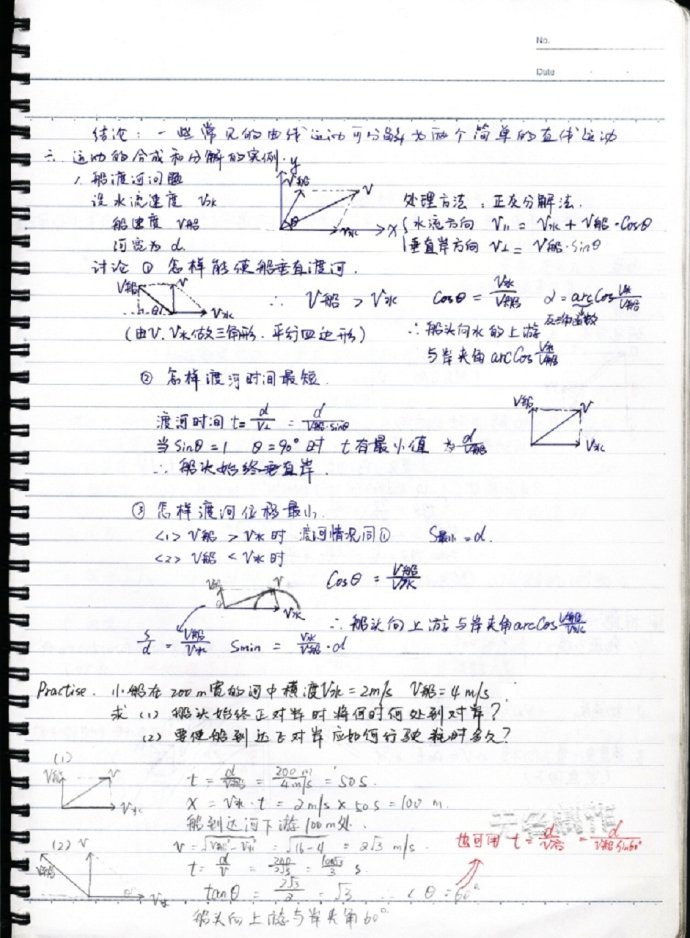 No.
Date
结论: 一些常见的曲线运动可分解为两个简单的直线运动
二. 运动的合成和分解的实例.
y
1. 船渡河问题
V船 V
设水流速度 V水
处理方法: 正交分解法.
船速度 V船
θ V水 X
水流方向 V∥ = V水 + V船·Cosθ
河宽为 d.
垂直岸方向 V⊥ = V船·Sinθ
讨论 ① 怎样能使船垂直渡河.
V船 V V水
θ
∴ V船 > V水 Cosθ = V水/V船 α = arcCos V水/V船
反三角函数
(由V, V水做三角形, 平行四边形)
∴ 船头向水的上游
与岸夹角 arcCos V水/V船
② 怎样渡河时间最短.
V船 V
渡河时间 t = d/V⊥ = d/V船·sinθ
V水
当 Sinθ = 1 θ = 90° 时 t 有最小值 为 d/V船
∴ 船头始终垂直岸.
③ 怎样渡河位移最小.
<1> V船 > V水 时 渡河情况同① S最小 = d.
<2> V船 < V水 时
Cosθ = V船/V水
V船 V
V水
∴ 船头向上游与岸夹角 arcCos V船/V水
s/d = V船/V水 Smin = V水/V船·d
Practise. 小船在 200m 宽的河中横渡 V水 = 2m/s V船 = 4m/s.
求 (1) 船头始终正对岸时将何时何处到对岸?
(2) 要使船到达正对岸应如何行驶 耗时多久?
(1)
V船 V
V水
t = d/V船 = 200 m/4 m/s = 50s.
X = V水·t = 2m/s × 50s = 100 m.
船到达河下游 100m 处.
(2) V
V船
V水
V = √V船²-V水² = √16-4 = 2√3 m/s.
也可用 t = d/V合 = d/V船sin60°
t = d/V = 200/2√3 = 100√3/3 s
tanθ = 2√3/2 = √3 ∴ ∠θ = 60°
船头向上游与岸夹角 60°